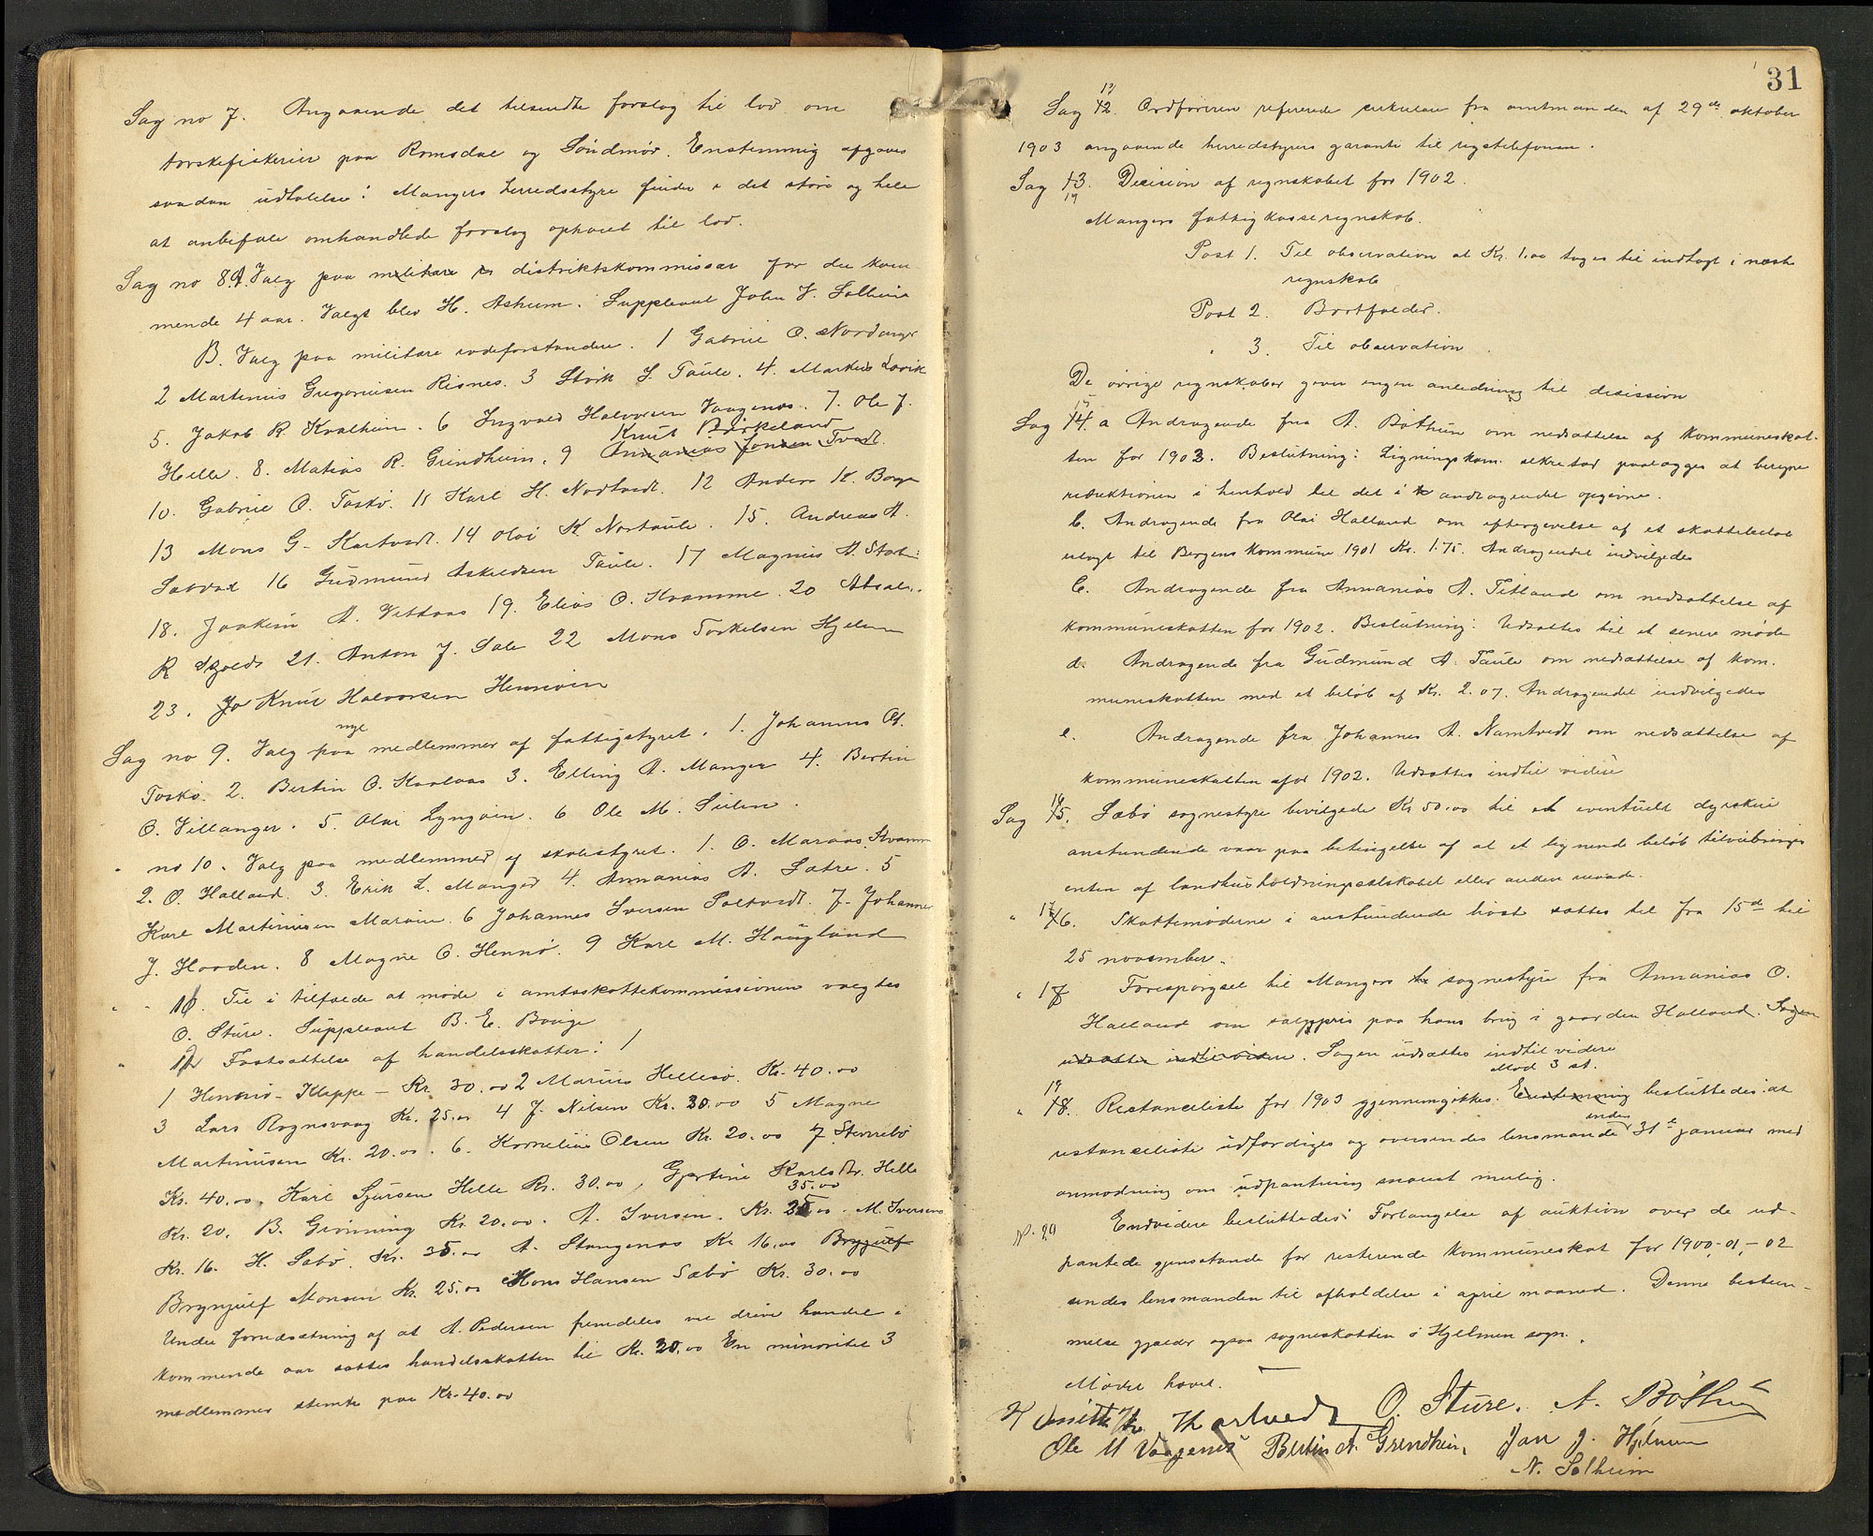 Sag no 7. Angaaende det tilsendte forslag til lov om
torskefiskerier paa Romsdal og Søndmør. Enstemmig afgaves
saadan udtalelse: Mangers herredsstyre finder i det store og hele
at anbefale omhandlede forslag ophøiet til lov.
Sag no 8. A. Valg paa militære distriktskommissær for de kom
mende 4 aar. Valgt blev H. Askum. Suppleant John J. Solheim
B. Valg paa militære rodeforstandere. 1 Gabriel O. Nordanger
2 Martinus Gregoriusen Risnes. 3 S. Taule. 4. Markus Lavik
5. Jakob R. Kvalheim. 6 Ingvald Halvorsen Vaagenes. 7. Ole J.
Knut Birkeland
Helle. 8. Matias R. Grindheim. 9 Annanias Jonsen Tvedt.
10. Gabriel O. Toskø. 11 Karl H. Nordtvedt. 12 Anders K. Bouge
13 Mons G. Kartvedt. 14 Olai K. Nortaule. 15. Andreas A.
16 Gudmund Askildsen Taule. 17 Magnus A.
18. Joakim A. Vetaas 19. Elias O. Kvamme. 20
R. 21. Anton J. Sale 22 Mons Torkelsen Hjelmen
23. Knut Halvorsen Hennøen
nye
Sag no 9. Valg paa medlemmer af fattigstyret. 1. Johannes A.
Toskø. 2. Bertin O. Kaalaas 3. Elling A. Manger 4. Bertin
O. Villanger. 5. Olai Lyngøen. 6 Ole M.
" no 10. Valg paa medlemmer af skolestyret. 1. O. Maraas, Kvamme
2. O. Halland. 3. Erik L. Manger 4. Annanias A. Sætre. 5
Karl Martinusen Marøen. 6 Johannes Iversen Toltvedt. 7. Johannes
J. Haaden. 8 Magne O. Hennø. 9 Karl M. Haugland
" " Til i tilfælde at møde i amtsskattekommissionen valgtes
O. Sture. Suppleant B. E. Bouge
" Fastsættelse af handelsskatter:
1 Hennø-Kleppe - Kr. 30.00 2 Marius Hellesø. Kr. 40.00
3 Lars Rognsvaag Kr. 25.00 4 J. Nilsen Kr. 30.00 5 Magne
Martinusen Kr. 20.00. 6. Kornelius Olsen Kr. 20.00 7
Kr. 40.00. Karl Sjursen Helle Kr. 30.00, Gjertine Karlsdtr. Helle
35.00
Kr. 20. B. Grønning Kr. 20.00. A. Iversen. Kr. M. Iversens
Kr. 16. H. Sæbø. Kr. 35.00 A. Stangenes Kr. 16.00 Brygulf
Brynjulf Monsen Kr. 25.00 Hans Hansen Sæbø Kr. 30.00
Under forudsætning af at A. Pedersen fremdeles vil drive handel i
kommende aar sættes handelsskatten til Kr. 20.00 En minoritet 3
medlemmer stemte paa Kr. 40.00
31
13
Sag 12. Ordføreren refererede cirkulære fra amtmanden af 29de oktober
1903 angaaende herredstyrers garanti til rigstelefonen.
Sag 13. Decision af regnskabet for 1902.
14
Mangers fattigkasseregnskab.
Post 1. Til observation at Kr. 1.00 tages til indtægt i næste
regnskab
Post 2. Bortfalder.
" 3. Til observation.
De øvrige regnskaber giver ingen anledning til desission
15
Sag 14. a Andragende fra A. Bøthun om nedsættelse af kommuneskat-
ten for 1903. Beslutning: Ligningskom. sekretær paalægges at beregne
reduktionen i henhold til det i andragendet opgivne.
b. Andragende fra Olai Halland om eftergivelse af et skattebeløb
ilagt til Bergens kommune 1901 Kr. 1.75. Andragendet indvilgedes
c. Andragende fra Annanias A. Titland om nedsættelse af
kommuneskatten for 1902. Beslutning: Udsættes til et senere møde
d. Andragende fra Gudmund A. Taule om nedsættelse af kom.
muneskatten med et beløb af Kr. 2.07. Andragendet indvilgedes
e. Andragende fra Johannes A. Namtvedt om nedsættelse af
kommuneskatten for 1902. Udsættes indtil videre
16
Sag 15. Sæbø sognestyre bevilgede Kr 50.00 til et eventuelt dyrskue
anstundende vaar paa betingelse af at et lignende beløb tilveiebringes
enten af landhusholdningsselskabet eller anden maade.
17
" 16. Skattemøderne i anstundende høst sættes til fra 15de til
25 november.
" 17 Forespørgsel til Mangers sognestyre fra Annanias O.
Halland om salgspris paa hans brug i gaarden Halland. Sagen
udsættes indtil videre. Sagen udsættes indtil videre
Mod 3 st.
19
" 18. Restanceliste for 1903 gjennemgikkes. Enstemmig besluttedes at
inden
restanceliste udfærdiges og oversendes lensmanden 31te januar med
anmodning om udpantning snarest mulig.
N. 20 Endvidere besluttedes: Forlangelse af auktion over de ud-
pantede gjenstande for resterende kommuneskat for 1900-01-02
sendes lensmanden til afholdelse i april maaned. Denne bestem-
melse gjælder ogsaa sogneskatten i Hjelmen sogn.
Mødet hævet.
O. Sture. A. Bøthun
Ole M Vaagenes Bertin A. Grindheim, Jan J. Hjelmen
N. Solheim